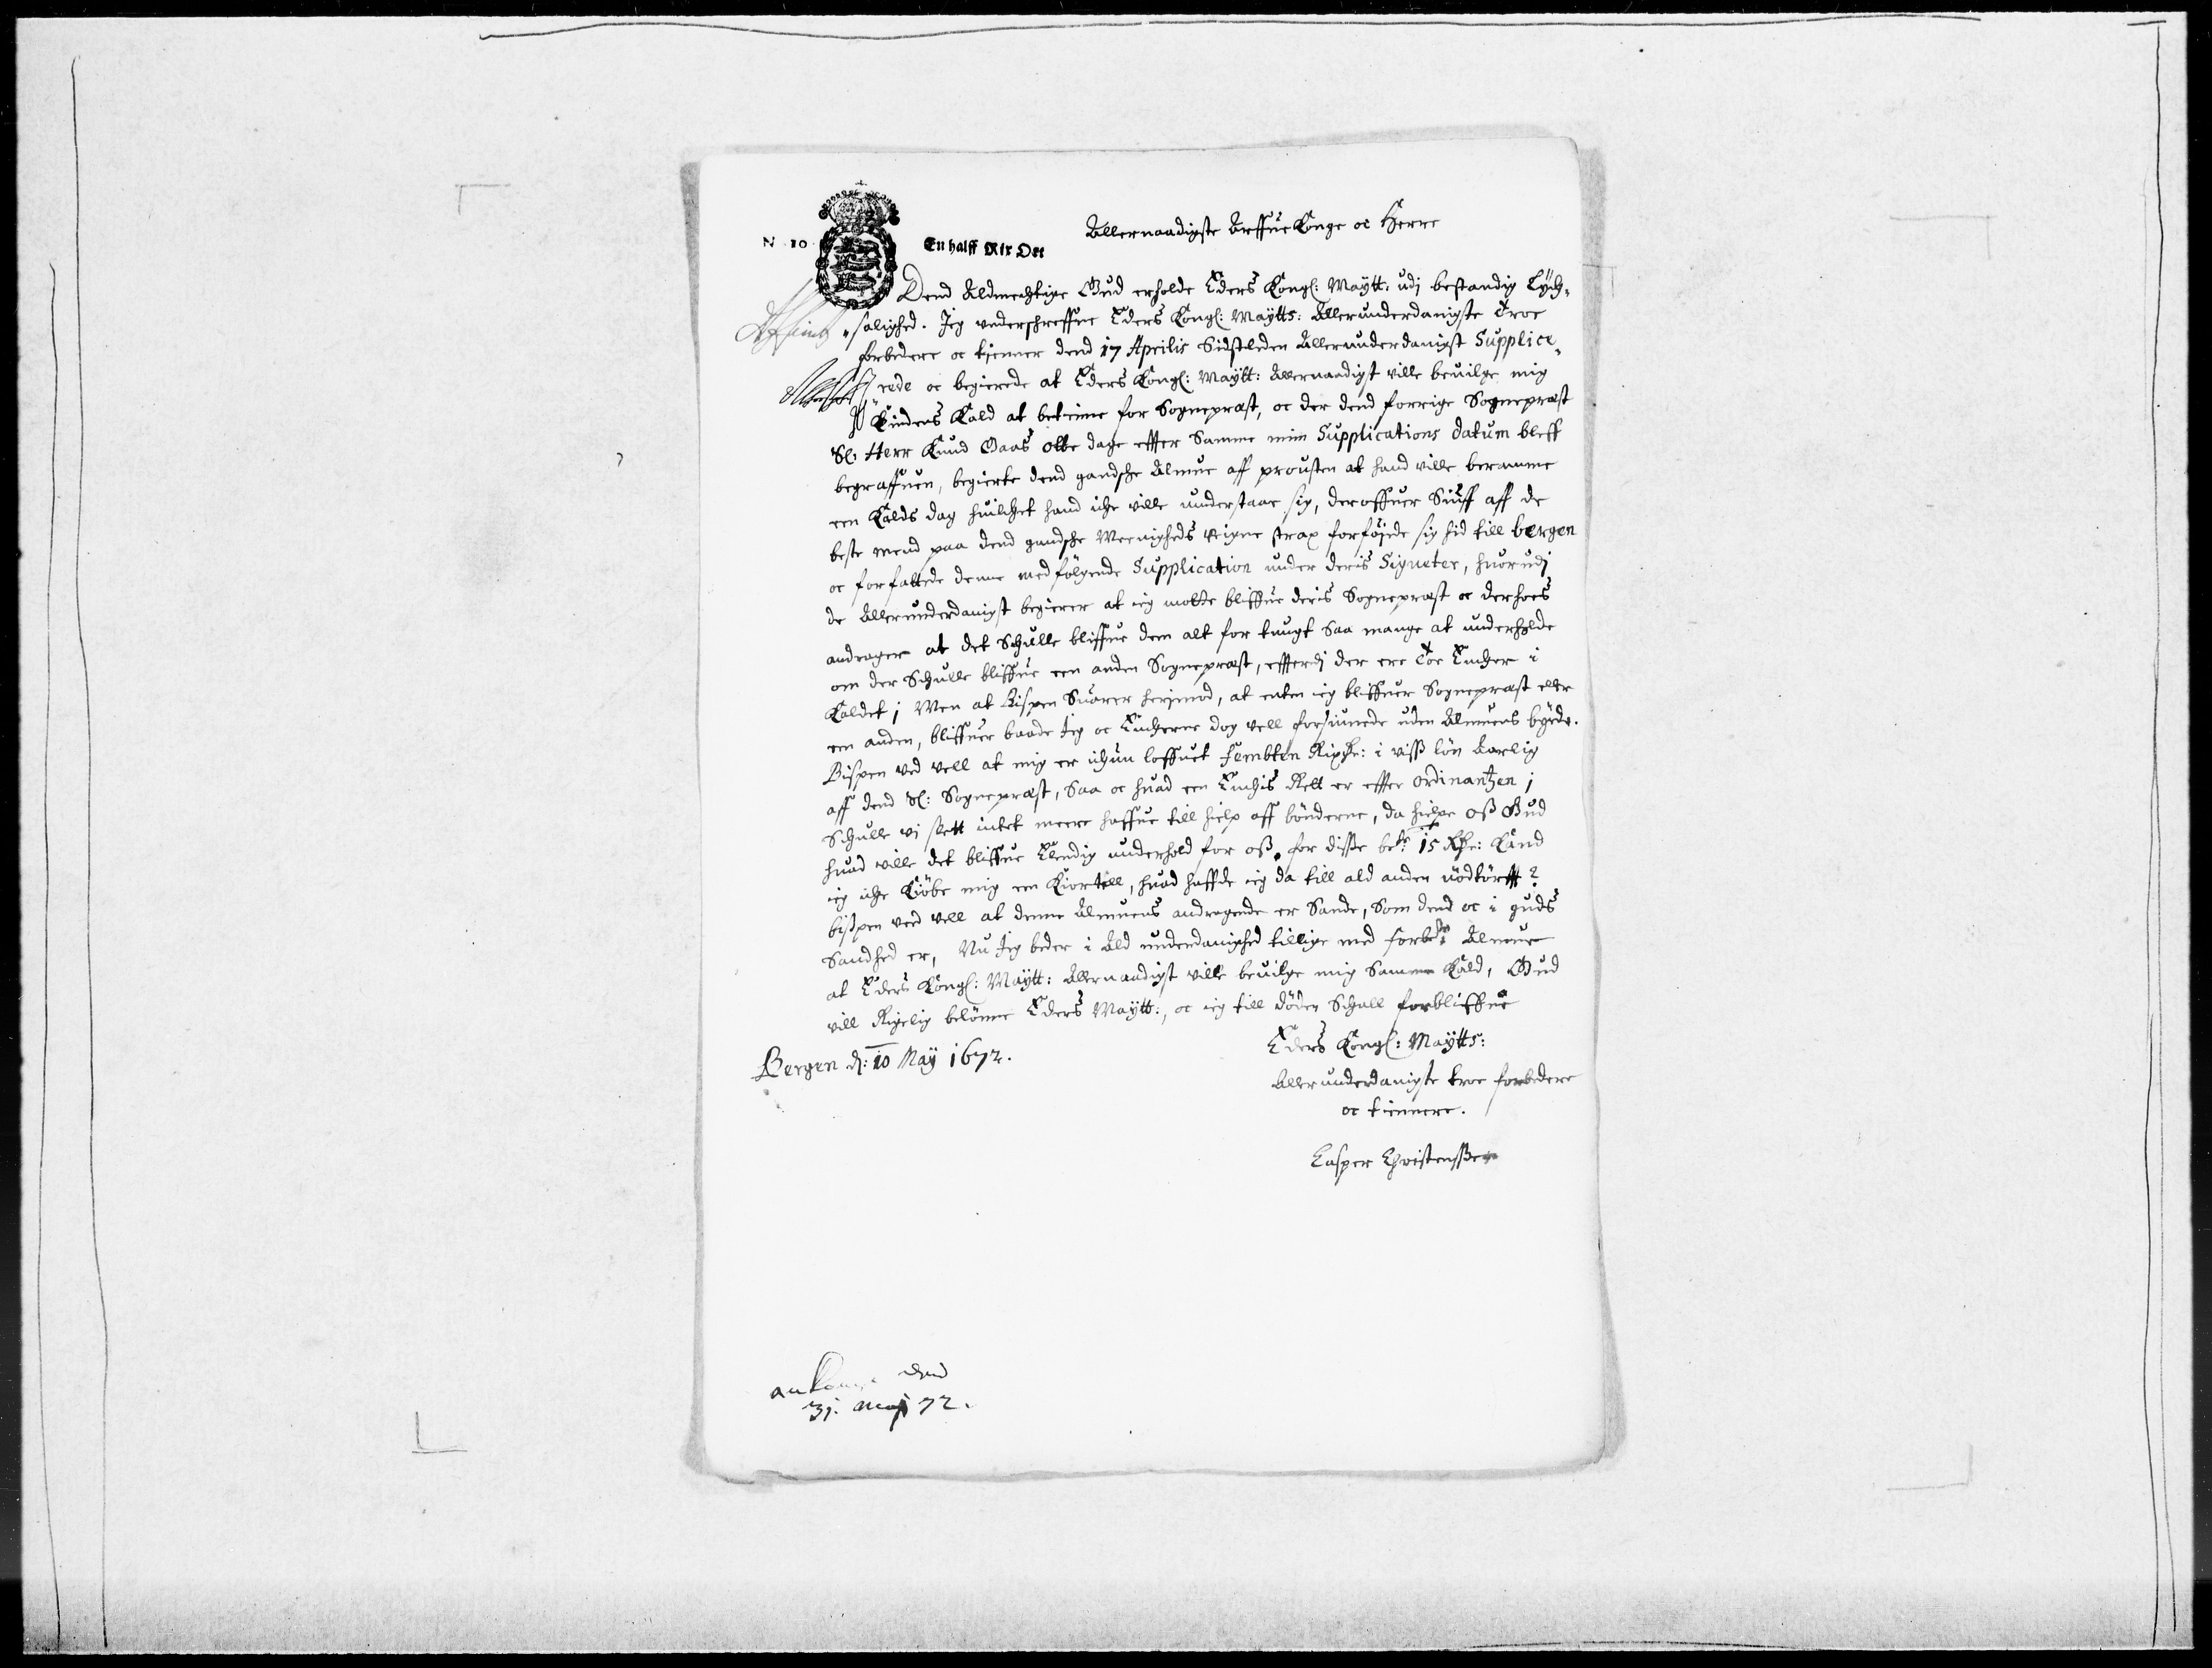 N 10
En halff Rix Ort
Allernaadigste Arffue Konge oc Herre
Dend Aldmechtige Gud erholde Eders Kongl: Maytt: udj bestandig Lych„
„salighed. Jeg underschreffne Eders Kongl: Maytts: Allerunderdanigste Troe
forbedere oc tjenner dend 17 Aprilis Sidstleden Allerunderdanigst Supplice„
„rede oc begierede at Eders Kongl: Maytt: Allernaadigst ville beuilge mig
Kinderns Kald at betienne for Sognepræst, oc der dend forrige Sognepræst
Sl: Herr Knud Gaas otte dage effter Samme min Supplications datum bleff
begraffuen, begierte dend gandsche Almue aff prousten at hand ville beramme
een Kalds dag huilchet hand iche ville understaae sig, deroffuer Siuff aff de
beste mend paa dend gandsche Meenigheds veigne strax forføjede sig hid till bergen
oc forfattede denne medfølgende Supplication under deris Signeter, huorudj
de Allerunderdanigst begierer at ieg motte bliffue deris Sognepræst oc derhoes
andrager at det Schulle bliffue dem alt for tungt Saa mange at underholde
om der Schulle bliffue een anden Sognepræst, effterdj der ere Toe Encher i
Kaldet; Men at Bispen Suarer herjmod, at enten ieg bliffuer Sognepræst eller
een anden, bliffuer baade Jeg oc Encherne dog vell forsiunede uden Almuens byrde.
Bispen ved vell at mig er ichun loffuet fembten Rixdr: i viss løn Aarlig
aff dend Sl: Sognepræst, Saa oc huad een Enchis Rett er effter ordinantzen;
Schulle vi slett intet meere haffue till hielp aff bønderne, da hielpe oss Gud
huad ville det bliffue Elendig underhold for oss, for disse bete 15 Rdr: Kand
ieg iche Kiøbe mig een Kiortell, huad haffde ieg da till ald anden nødtørfft?
bispen ved vell at denne Almuens andragende er Sande, Som dend oc i guds
Sandhed er, Nu Jeg beder i Ald underdanighed tillige med forbete Almue
at Eders Kongl: Maytt: Allernaadigst ville beuilge mig Samme Kald, Gud
vill Rigelig belønne Eders Maytt:, oc ieg till døden Schall forbliffue
Eders Kongl: Maytts:
Bergen d: 10 May 1672.
Allerunderdanigste troe forbedere
oc tiennere.
Casper Christenssen
ankom dend
31. maj 72.